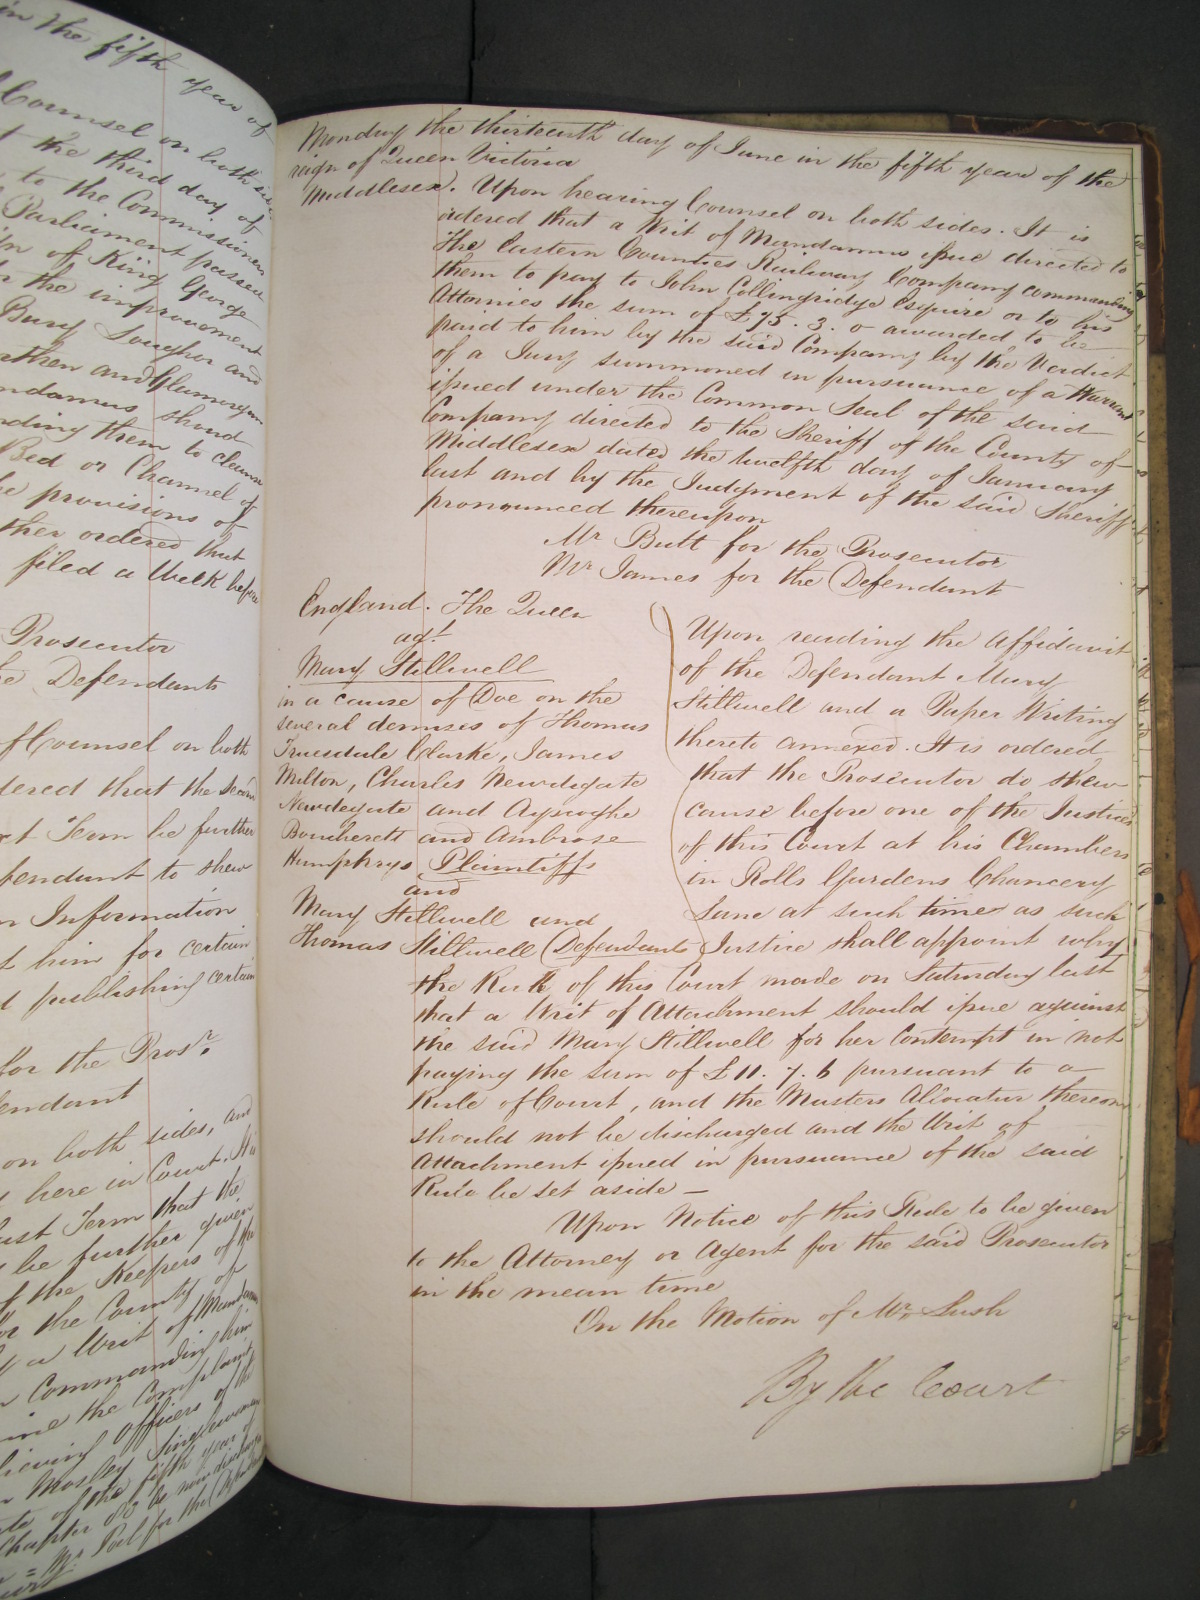 in the fifth year of
Counsel on both sides
the third day of
to the Commissioners
Parliament passed
of King George
the improvement
Bury Loughor and
and Glamorgan
should
them to cleanse
Bed or Channel of
provisions of
ordered that
filed a Week before
Prosecutor
Defendants
of Counsel on both
that the second
Term be further
to shew
Information
him for certain
publishing certain
for the Prosr.
on both sides, and
here in Court. It is
last Term that the
be further given
of the Keepers of the
the County of
a Writ of Mandamus
Commanding him
the Complaint
Officers of the
Mosley Singlewoman
of the fifth year of
Chapter be now discharged
Mr. for the Defendant
Monday the thirteenth day of June in the fifth year of the
reign of Queen Victoria
Middlesex. Upon hearing Counsel on both sides. It is
ordered that a Writ of Mandamus issue directed to
The Eastern Counties Railway Company commanding
them to pay to John Collingridge Esquire or to his
Attornies the sum of £75. 3. 0 awarded to be
paid to him by the said Company by the Verdict
of a Jury summoned in pursuance of a Warrant
issued under the Common Seal of the said
Company directed to the Sheriff of the County of
Middlesex dated the twelfth day of January
last and by the Judgment of the said Sheriff
pronounced thereupon
Mr Butt for the Prosecutor
Mr James for the Defendant
England. The Queen
agt.
Mary Stillwell
in a cause of Doe on the
several demises of Thomas
Truesdale Clarke, James
Milton, Charles Newdigate
Newdegate and Ayscoghe
Boucherett and Ambrose
Humphrys Plaintiffs
and
Mary Stillwell and
Thomas Stillwell Defendants
Upon reading the Affidavit
of the Defendant Mary
Stillwell and a Paper Writing
thereto annexed. It is ordered
that the Prosecutor do shew
cause before one of the Justices
of this Court at his Chambers
in Rolls Gardens Chancery
Lane at such time as such
Justice shall appoint why
the Rule of this Court made on Saturday last
that a Writ of Attachment should issue against
the said Mary Stillwell for her Contempt in not
paying the sum of £11. 7. 6 pursuant to a
Rule of Court, and the Masters Allocatur thereon
should not be discharged and the Writ of
Attachment issued in pursuance of the said
Rule be set aside —
Upon Notice of this Rule to be given
to the Attorney or Agent for the said Prosecutor
in the mean time
On the Motion of Mr. Lush
By the Court